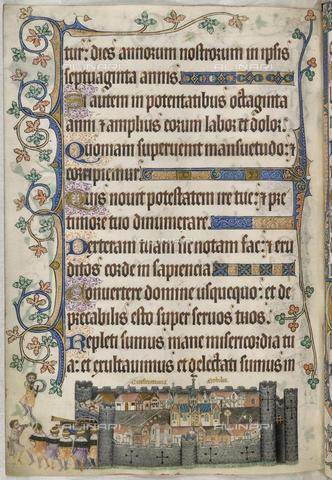 tur: dies annorum nostrorum in ipsis
septuaginta annis.
Si autem in potentatibus octaginta
anni: & amplius eorum labor et dolor.
Quoniam supervenit mansuetudo: &
corripiemur.
Quis novit potestatem ire tue: & pre
timore tuo dinumerare.
Dexteram tuam sic notam fac: & eru
ditos corde in sapiencia
Convertere domine usquequo: et de
precabilis esto super servos tuos.
Repleti sumus mane misericordia tu
a: et exultavimus et delectati sumus in
ALINARI
ALINARI
ALINARI